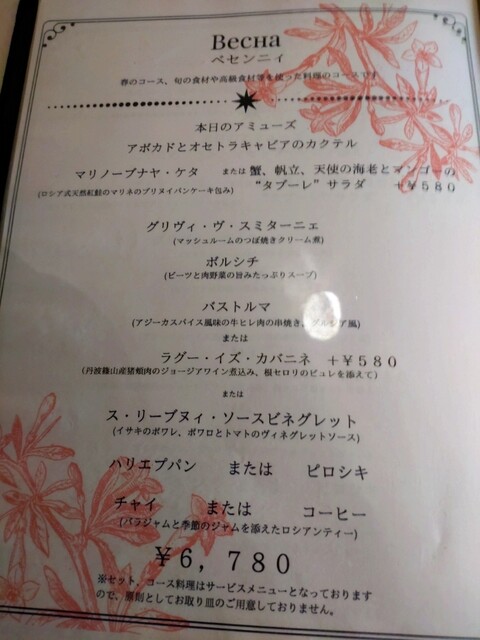 Весна
ベセンニィ
春のコース、旬の食材や高級食材等を使った料理のコースです
本日のアミューズ
アボカドとオセトラキャビアのカクテル
マリノーブナヤ・ケタ または 蟹、帆立、天使の海老とマンゴーの
(ロシア式天然紅鮭のマリネのブリヌイパンケーキ包み) “タブーレ”サラダ +￥580
グリヴィ・ヴ・スミターニェ
(マッシュルームのつぼ焼きクリーム煮)
ボルシチ
(ビーツと肉野菜の旨みたっぷりスープ)
バストルマ
(アジーカスパイス風味の牛ヒレ肉の串焼き、グルジア風)
または
ラグー・イズ・カバニネ +￥580
(丹波篠山産猪頬肉のジョージアワイン煮込み、根セロリのピュレを添えて)
または
ス・リーブヌィ・ソースビネグレット
(イサキのポワレ、ポワロとトマトのヴィネグレットソース)
ハリエプパン または ピロシキ
チャイ または コーヒー
(バラジャムと季節のジャムを添えたロシアンティー)
￥6,780
※セット、コース料理はサービスメニューとなっております
ので、原則としてお取り皿のご用意しておりません。